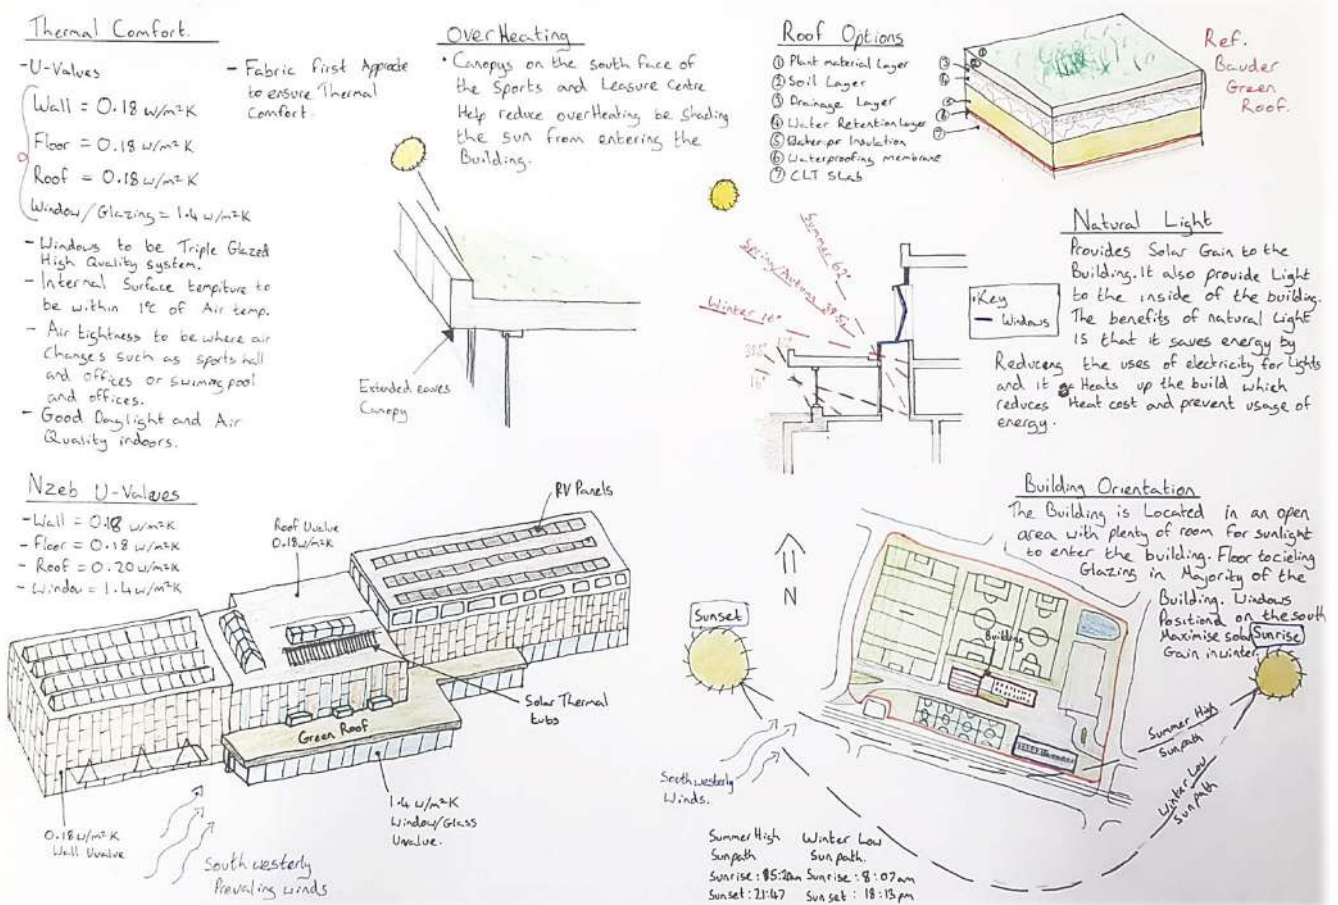 Thermal Comfort.
-U-Values
Wall = 0.18 w/m²K
Floor = 0.18 w/m²K
Roof = 0.18 w/m²K
Window/Glazing = 1.4 w/m²K
- Windows to be Triple Glazed
High Quality system.
- Internal Surface tempiture to
be within 1°c of Air temp.
- Air tightness to be where air
Changes such as sports hall
and offices or swiming pool
and offices.
- Good Daylight and Air
Quality indoors.
- Fabric first
to ensure Thermal
Comfort.
Over Heating
• Canopys on the south face of
the Sports and Leasure Centre
Help reduce overHeating be Shading
the sun from entering the
Building.
Extended eaves
Canopy
Roof Options
① Plant material Layer
② Soil Layer
③ Drainage Layer
④ Water Retention Layer
⑤ Insulation
⑥ Waterproofing membrane
⑦ CLT Slab
①
②
③
④
⑤
⑥
⑦
Ref.
Bauder
Green
Roof.
Summer 62°
Spring/Autumn 38.5°
Winter 16°
38.5°
16°
• Key
Windows
Natural Light
Provides Solar Gain to the
Building. It also provide Light
to the inside of the building.
The benefits of natural Light
is that it saves energy by
Reducing the uses of electricity for Lights
and it Heats up the build which
reduces Heat cost and prevent usage of
energy.
Nzeb U-Values
- Wall = 0.18 w/m²K
- Floor = 0.18 w/m²K
- Roof = 0.20 w/m²K
- Window = 1.4 w/m²K
Roof Uvalue
0.18 w/m²K
RV Panels
Solar Thermal
tubs
Green Roof
1.4 w/m²K
Window/Glass
Uvalue.
0.18 w/m²K
Wall Uvalue
South westerly
Prevaling winds
Building Orientation
The Building is Located in an open
area with plenty of room for sunlight
to enter the building. Floor to cieling
Glazing in Majority of the
Building. Windows
Positiond on the south
Maximise solar
Gain in winter.
N
Sunset
Sunrise
Building
South westerly
Winds.
Summer High
Sun path
Winter Low
Sun path
Summer High Winter Low
Sunpath Sun path.
Sunrise: Sunrise: 8:07am
Sunset: 21:47 Sunset: 18:13pm